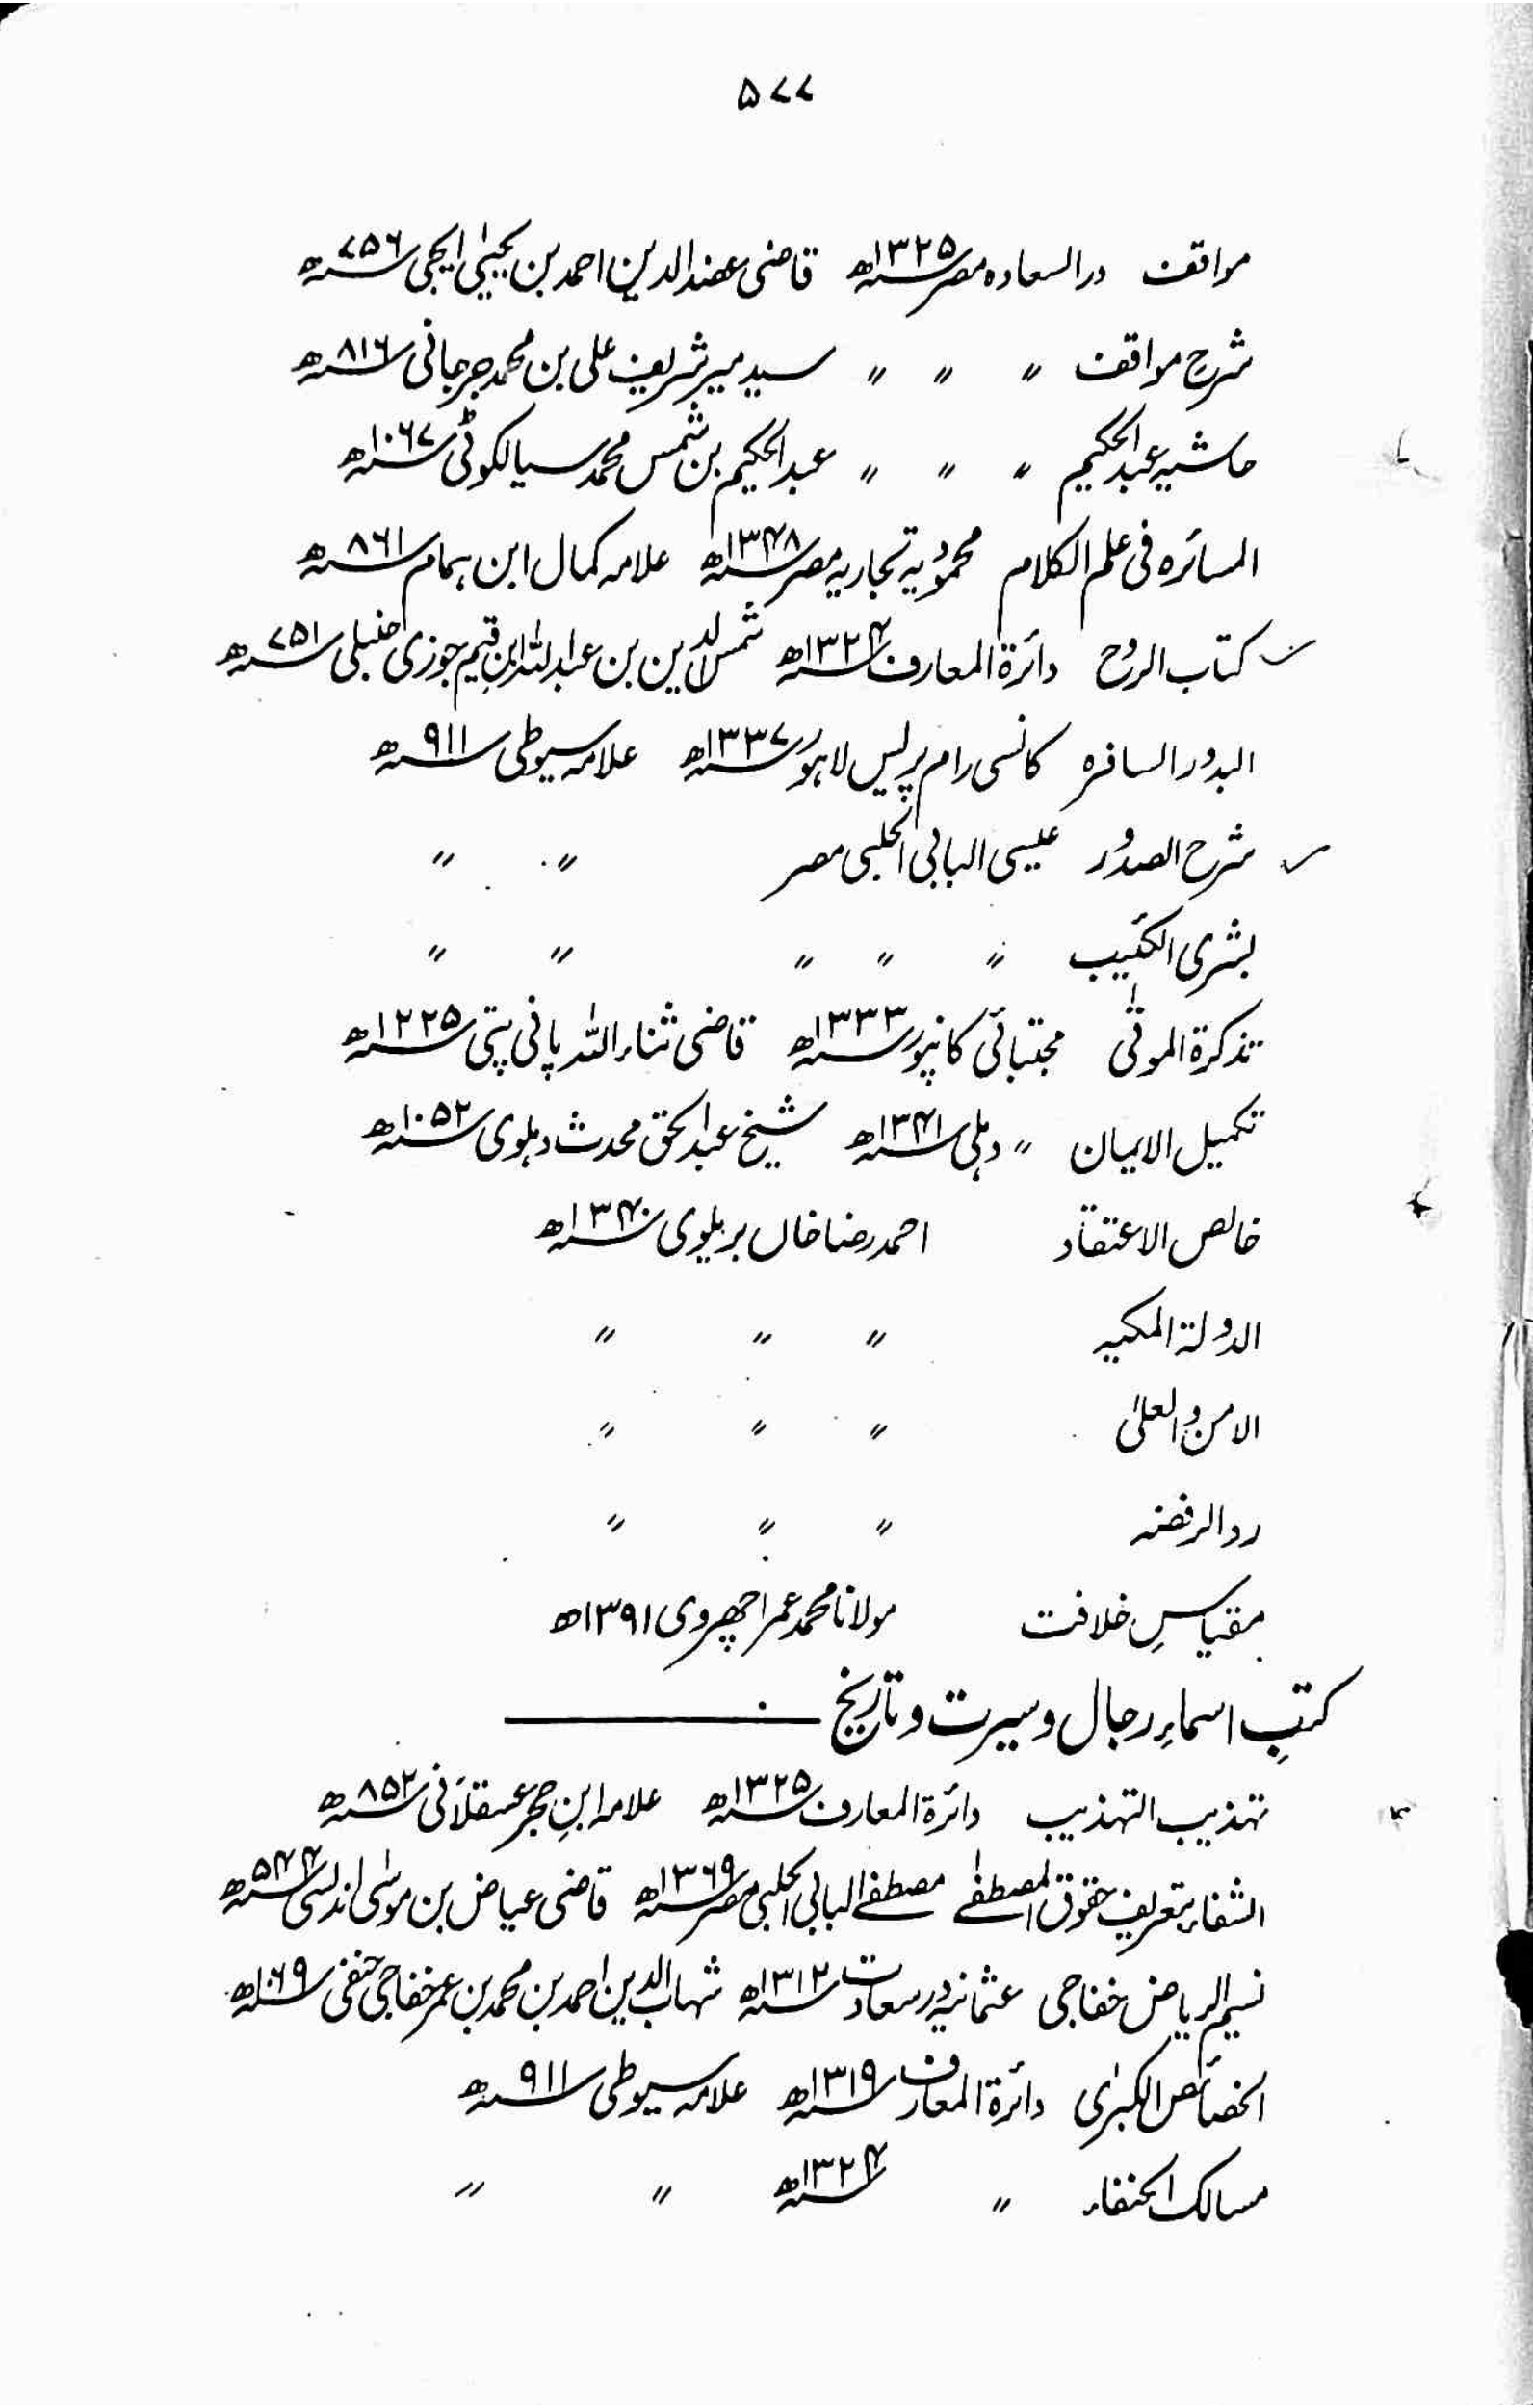 ۵۷۷
مواقف درالسعاده مصر ۱۳۲۵ھ قاضی عضدالدین احمد بن یحییٰ ایجی ۷۵۶ھ
شرح مواقف 〃 〃 〃 سید میر شریف علی بن محمد جرجانی ۸۱۶ھ
حاشیہ عبدالحکیم 〃 〃 〃 عبدالحکیم بن شمس محمد سیالکوٹی ۱۰۶۷ھ
المسائرہ فی علم الکلام محمودیہ تجاریہ مصر ۱۳۴۸ھ علامہ کمال ابن ہمام ۸۶۱ھ
کتاب الروح دائرۃ المعارف ۱۳۲۴ھ شمس الدین بن عبداللہ ابنِ قیم جوزی حنبلی ۷۵۱ھ
البدور السافرہ کانسی رام پریس لاہور ۱۳۳۷ھ علامہ سیوطی ۹۱۱ھ
شرح الصدور عیسی البابی الحلبی مصر 〃 〃
بشری الکئیب 〃 〃 〃 〃 〃
تذکرۃ الموتٰی مجتبائی کانپور ۱۳۳۳ھ قاضی ثناء اللہ پانی پتی ۱۲۲۵ھ
تکمیل الایمان 〃 دہلی ۱۳۴۱ھ شیخ عبدالحق محدث دہلوی ۱۰۵۲ھ
خالص الاعتقاد احمد رضا خاں بریلوی ۱۳۴۰ھ
الدولۃ المکیہ 〃 〃 〃
الامن والعلیٰ 〃 〃 〃
ردالرفضہ 〃 〃 〃
مقیاسِ خلافت مولانا محمد عمر اچھروی ۱۳۹۱ھ
کتبِ اسماءِ رجال و سیرت و تاریخ
تہذیب التہذیب دائرۃ المعارف ۱۳۲۵ھ علامہ ابنِ حجر عسقلانی ۸۵۲ھ
الشفاء بتعریف حقوق المصطفٰے مصطفےٰ البابی الحلبی مصر ۱۳۶۹ھ قاضی عیاض بن موسٰی اندلسی ۵۴۴ھ
نسیم الریاض خفاجی عثمانیہ درسعادت ۱۳۱۲ھ شہاب الدین احمد بن محمد بن عمر خفاجی حنفی ۱۰۶۹ھ
الخصائص الکبرٰی دائرۃ المعارف ۱۳۱۹ھ علامہ سیوطی ۹۱۱ھ
مسالک الحنفاء 〃 ۱۳۲۴ھ 〃 〃